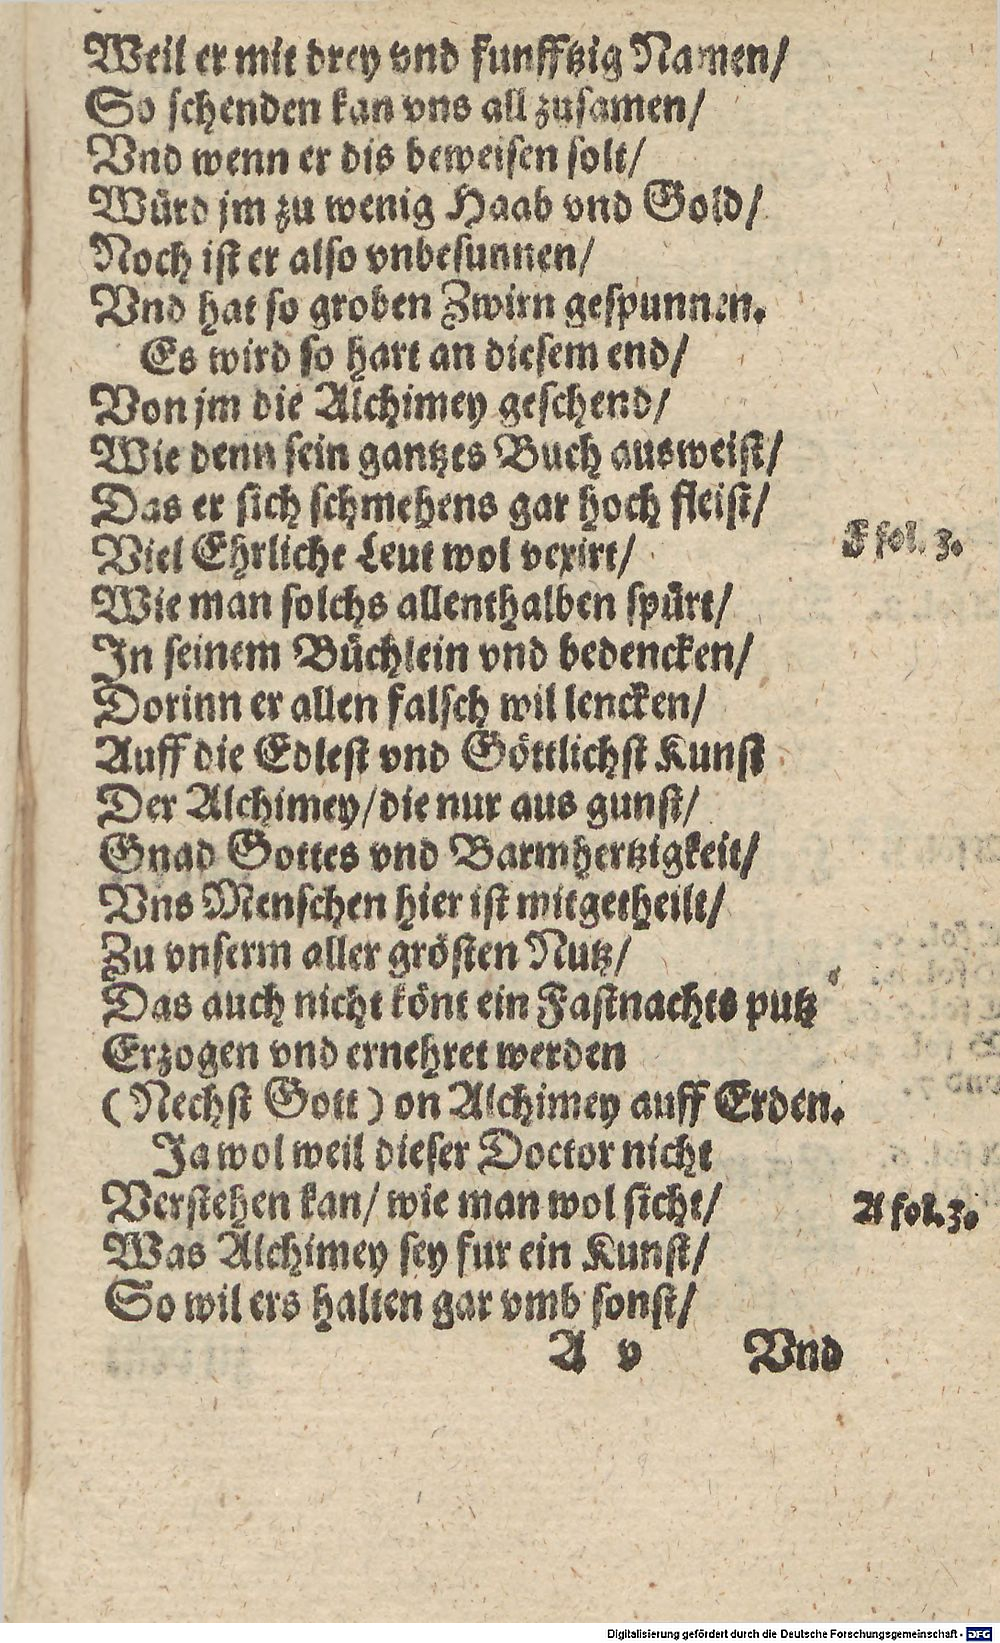 Weil er mit drey vnd funfftzig Namen/
So schenden kan vns all zusamen/
Vnd wenn er dis beweisen solt/
Würd jm zu wenig Haab vnd Gold/
Noch ist er also vnbesunnen/
Vnd hat so groben Zwirn gespunnen.
Es wird so hart an diesem end/
Von jm die Alchimey geschend/
Wie denn sein gantzes Buch ausweist/
Das er sich schmehens gar hoch fleist/
Viel Ehrliche Leut wol vexirt/
F fol. 3.
Wie man solchs allenthalben spürt/
In seinem Büchlein vnd bedencken/
Dorinn er allen falsch wil lencken/
Auff die Edlest vnd Göttlichst Kunst
Der Alchimey/die nur aus gunst/
Gnad Gottes vnd Barmhertzigkeit/
Vns Menschen hier ist mitgetheilt/
Zu vnserm aller grösten Nutz/
Das auch nicht könt ein Fastnachts putz
Erzogen vnd ernehret werden
(Nechst Gott) on Alchimey auff Erden.
Ja wol weil dieser Doctor nicht
Verstehen kan/ wie man wol sicht/
A fol. 3.
Was Alchimey sey fur ein Kunst/
So wil ers halten gar vmb sonst/
A v Vnd
Digitalisierung gefördert durch die Deutsche Forschungsgemeinschaft - DFG